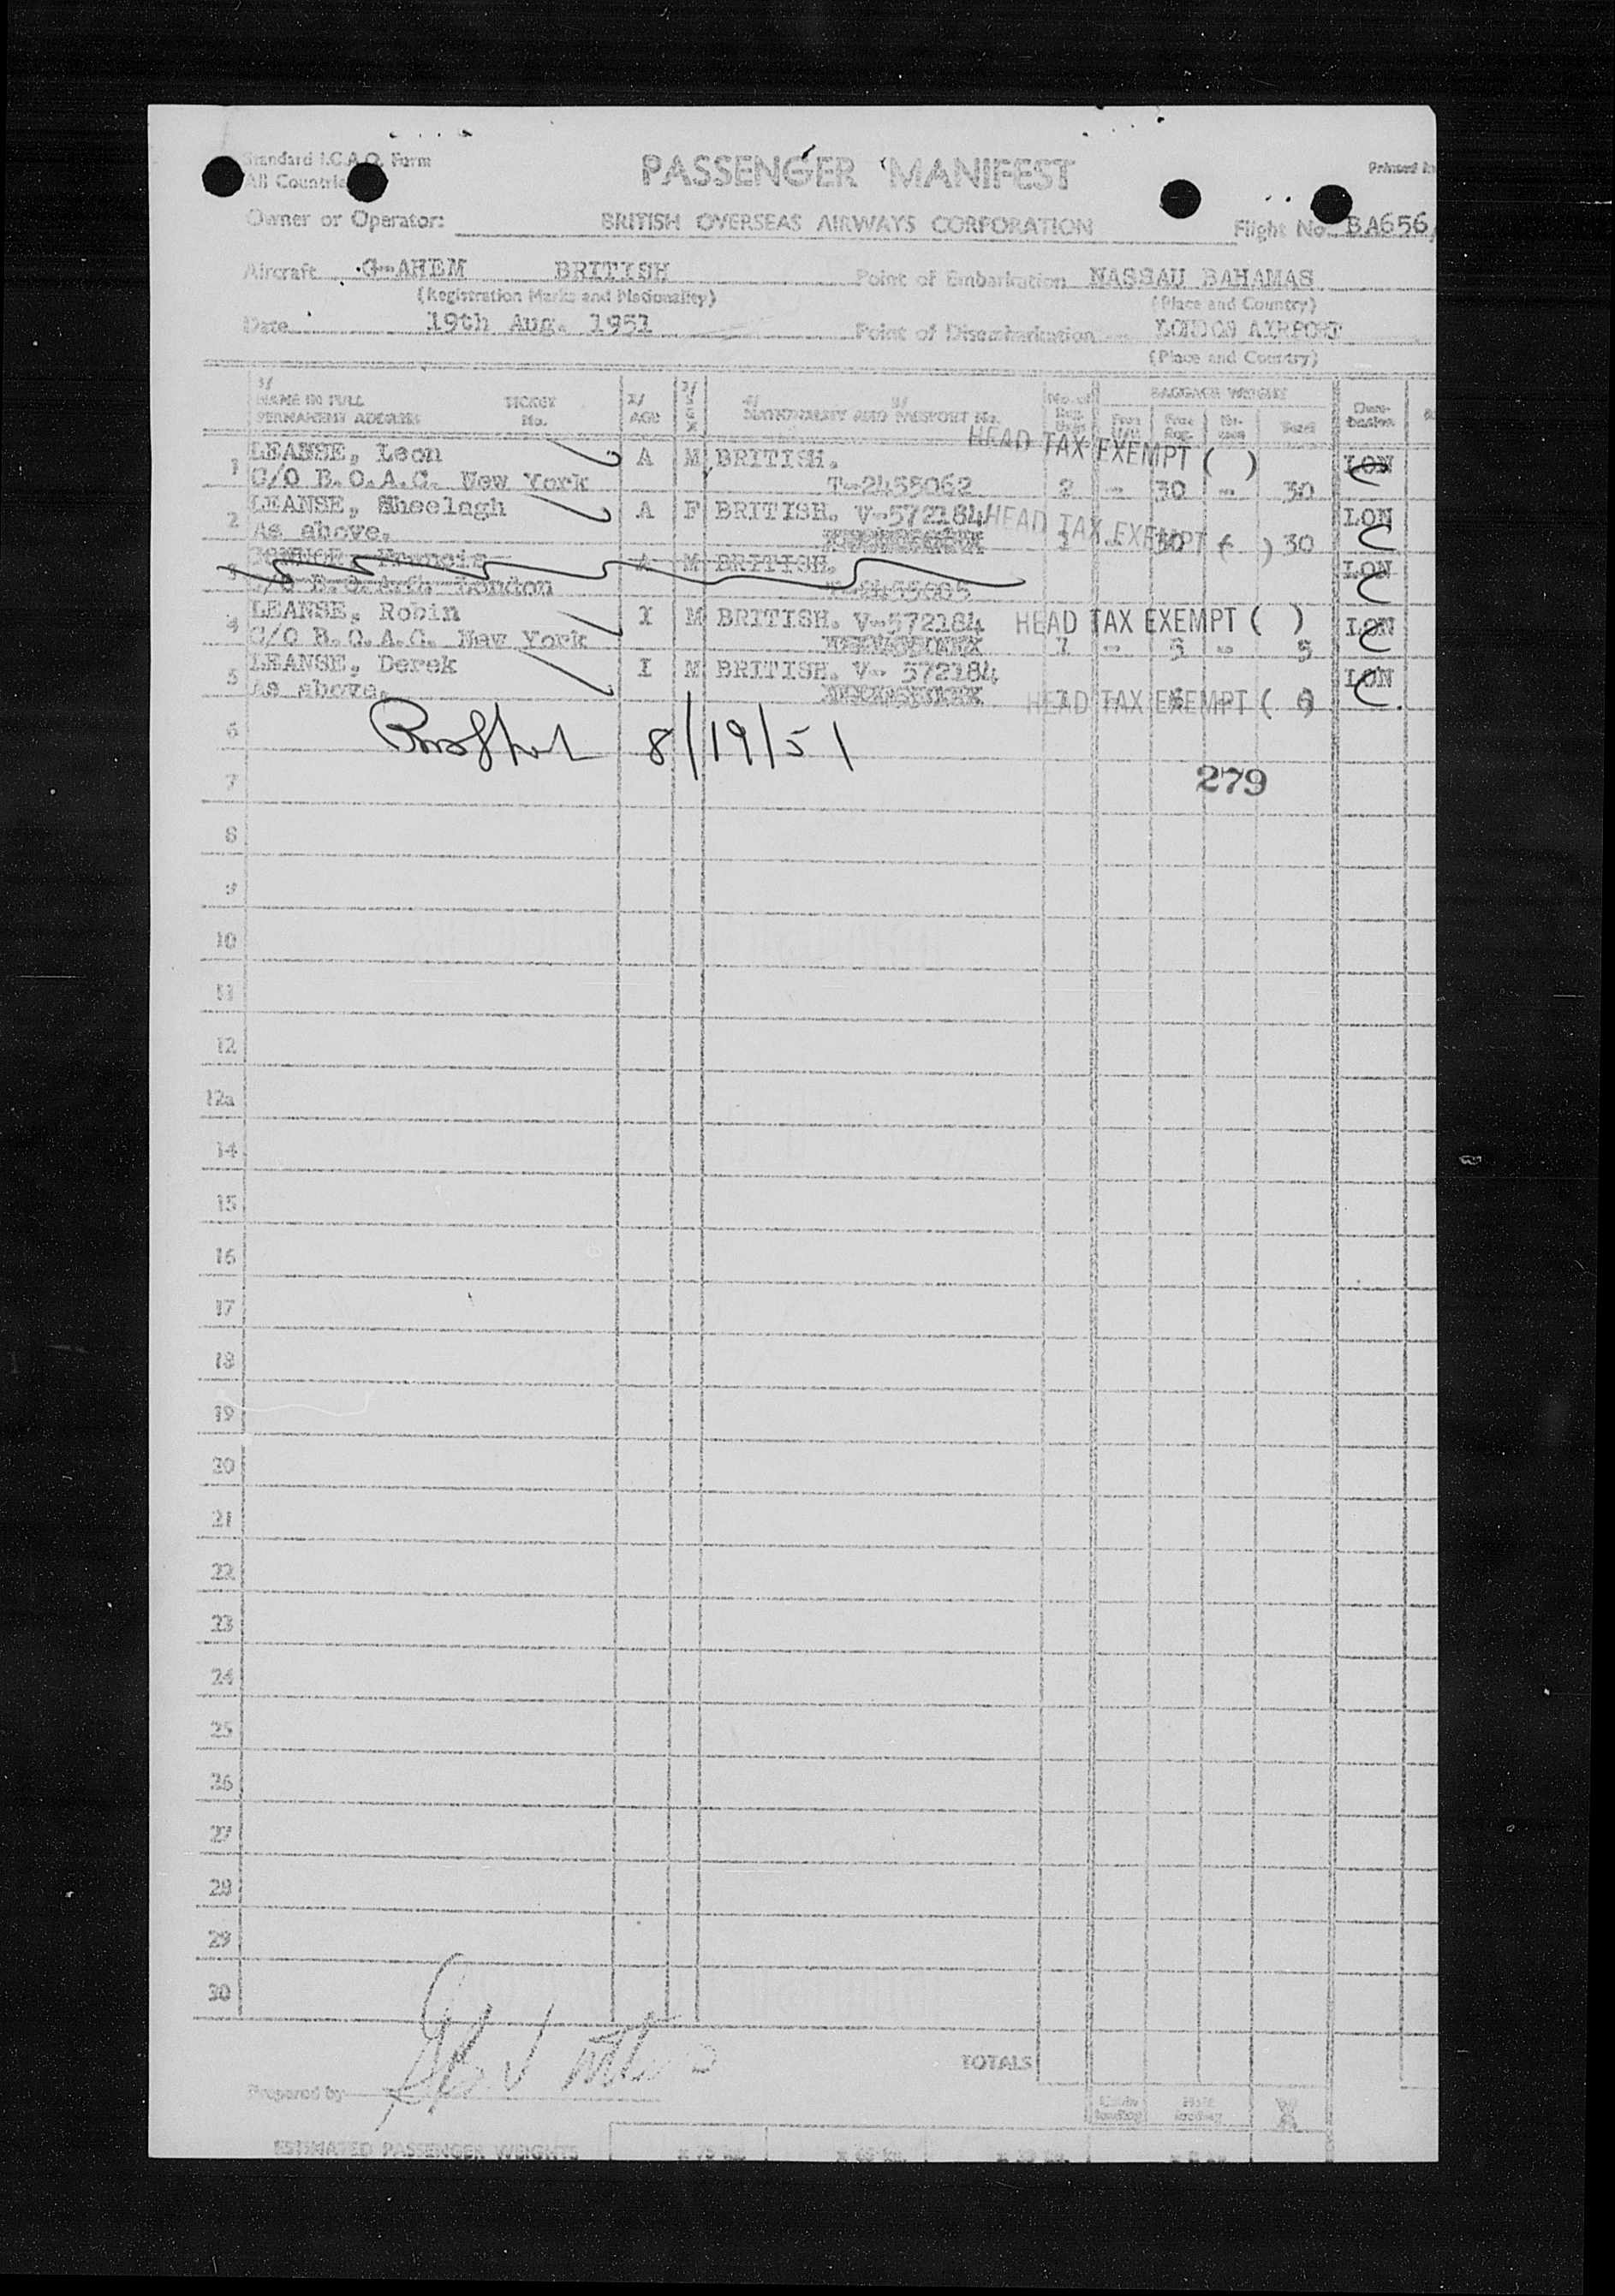 Standard I.C.A.O. Form
All Countries
PASSENGER MANIFEST
Printed in
Owner or Operator: BRITISH OVERSEAS AIRWAYS CORPORATION Flight No. BA656
Aircraft G-AHEM BRITISH Point of Embarkation NASSAU BAHAMAS
(Registration Marks and Nationality) (Place and Country)
Date 19th Aug. 1951 Point of Disembarkation LONDON AIRPORT
(Place and Country)
1/ NAME IN FULL PERMANENT ADDRESS TICKET No. 2/ AGE 3/ SEX 4/ 5/ NATIONALITY AND PASSPORT No. No. of BAGGAGE WEIGHT
1 LEANSE, Leon A M BRITISH. HEAD TAX EXEMPT ( ) LON
C/O B.O.A.C. New York T-2455062 2 - 30 - 30
2 LEANSE, Sheelagh A F BRITISH. V-572184 HEAD TAX EXEMPT ( ) LON
As above. 30 - 30
3 Francis A M BRITISH. LON
C/O B.O.A.C. London
4 LEANSE, Robin I M BRITISH. V-572184 HEAD TAX EXEMPT ( ) LON
C/O B.O.A.C. New York 1 - 5 - 5
5 LEANSE, Derek I M BRITISH. V- 572184 LON
As above. HEAD TAX EXEMPT ( )
6 8/19/51
7 279
8
9
10
11
12
12a
14
15
16
17
18
19
20
21
22
23
24
25
26
27
28
29
30
TOTALS
Prepared by
ESTIMATED PASSENGER WEIGHTS